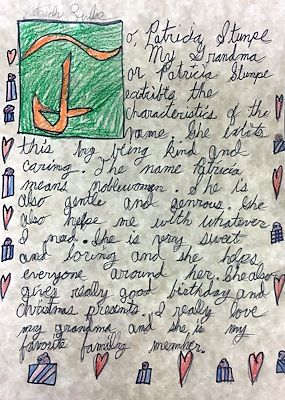 To, Patricia Stumpe
My Grandma
or Patricia Stumpe
exibits the
characteristics of the
name. She exibits
this by being kind and
caring. The name Patricia
means noblewomen. She is
also gentle and genrous. She
also helps me with whatever
I need. She is very sweet
and loving and she helps
everyone around her. She also
gives really good birthday and
christmas presents. I really love
my grandma and she is my
favorite family member.